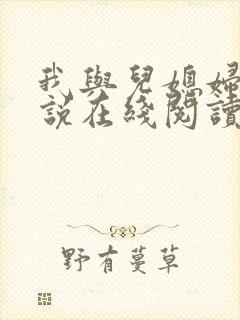 我與兒媳婦
說在綫閱讀
野有蔓草